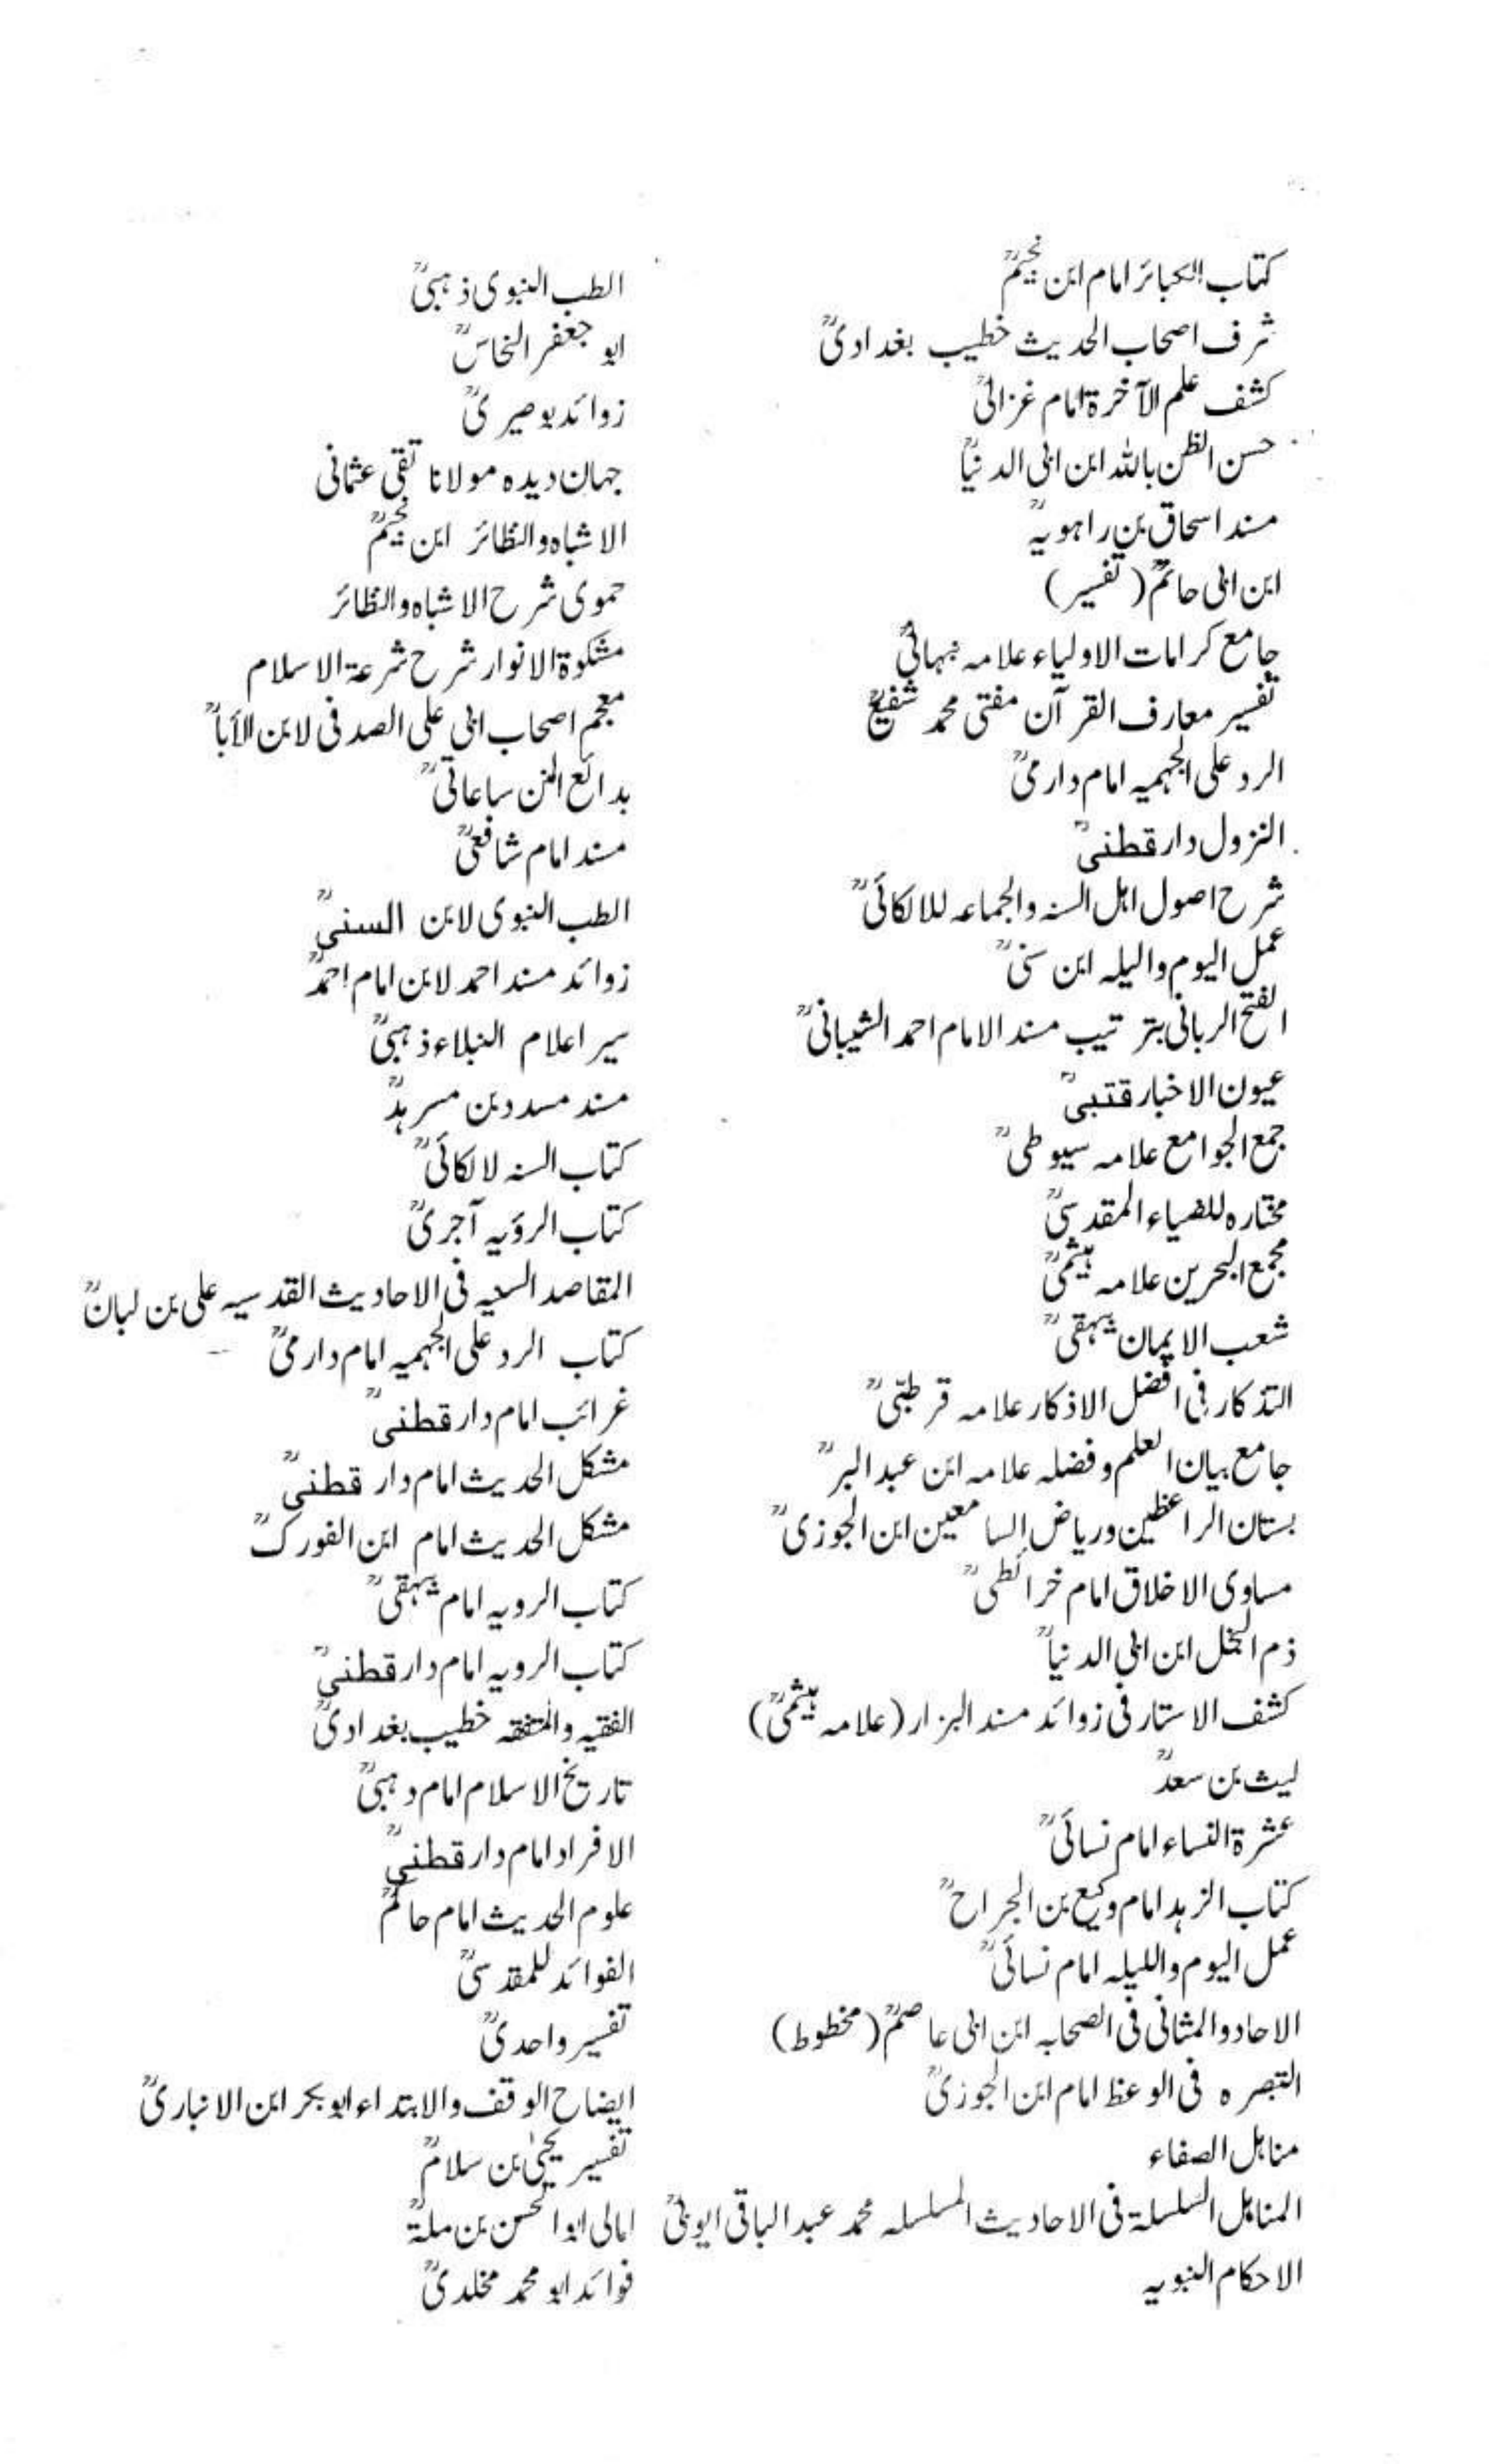 کتاب الکبائر امام ابن نجیمؒ
شرف اصحاب الحدیث خطیب بغدادیؒ
کشف علم الآخرۃ امام غزالیؒ
حسن الظن باللہ ابن ابی الدنیاؒ
مسند اسحاق بن راہویہؒ
ابن ابی حاتمؒ (تفسیر)
جامع کرامات الاولیاء علامہ نبہانیؒ
تفسیر معارف القرآن مفتی محمد شفیعؒ
الرد علی الجہمیہ امام دارمیؒ
النزول دارقطنیؒ
شرح اصول اہل السنہ والجماعہ للالکائیؒ
عمل الیوم والیلہ ابن سنیؒ
الفتح الربانی بترتیب مسند الامام احمد الشیبانیؒ
عیون الاخبار قتبیؒ
جمع الجوامع علامہ سیوطیؒ
مختارہ للضیاء المقدسیؒ
مجمع البحرین علامہ ہیثمیؒ
شعب الایمان بیہقیؒ
التذکار فی افضل الاذکار علامہ قرطبیؒ
جامع بیان العلم وفضلہ علامہ ابن عبدالبرؒ
بستان الراعظین وریاض السامعین ابن الجوزیؒ
مساوی الاخلاق امام خرائطیؒ
ذم البخل ابن ابی الدنیاؒ
کشف الاستار فی زوائد مسند البزار (علامہ ہیثمیؒ)
لیث بن سعدؒ
عشرۃ النساء امام نسائیؒ
کتاب الزہد امام وکیع بن الجراحؒ
عمل الیوم واللیلہ امام نسائیؒ
الاحاد والمثانی فی الصحابہ ابن ابی عاصمؒ (مخطوط)
التبصرہ فی الوعظ امام ابن الجوزیؒ
مناہل الصفاء
المناہل السلسلۃ فی الاحادیث المسلسلہ محمد عبدالباقی ایوبیؒ
الاحکام النبویہ
الطب النبوی ذہبیؒ
ابو جعفر النحاسؒ
زوائد بوصیریؒ
جہان دیدہ مولانا تقی عثمانی
الاشباہ والنظائر ابن نجیمؒ
حموی شرح الاشباہ والنظائر
مشکوۃ الانوار شرح شرعۃ الاسلام
معجم اصحاب ابی علی الصدفی لابن الأباؒ
بدائع المنن ساعاتیؒ
مسند امام شافعیؒ
الطب النبوی لابن السنیؒ
زوائد مسند احمد لابن امام احمدؒ
سیر اعلام النبلاء ذہبیؒ
مسند مسدد بن مسرہدؒ
کتاب السنہ لالکائیؒ
کتاب الرؤیہ آجریؒ
المقاصد السنیہ فی الاحادیث القدسیہ علی بن لبانؒ
کتاب الرد علی الجہمیہ امام دارمیؒ
غرائب امام دارقطنیؒ
مشکل الحدیث امام دار قطنیؒ
مشکل الحدیث امام ابن الفورکؒ
کتاب الرویہ امام بیہقیؒ
کتاب الرویہ امام دارقطنیؒ
الفقیہ والمتفقہ خطیب بغدادیؒ
تاریخ الاسلام امام ذہبیؒ
الافراد امام دارقطنیؒ
علوم الحدیث امام حاکمؒ
الفوائد للمقدسیؒ
تفسیر واحدیؒ
ایضاح الوقف والابتداء ابوبکر ابن الانباریؒ
تفسیر یحییٰ بن سلامؒ
امالی ابوالحسن بن ملۃؒ
فوائد ابو محمد مخلدیؒ